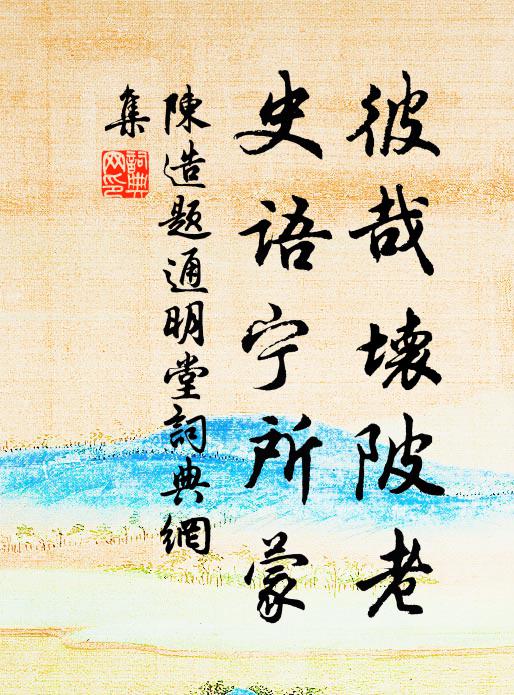 彼哉壞陂老
史語宁所蒙
陳造題通明堂詞典網
集
詞典网印